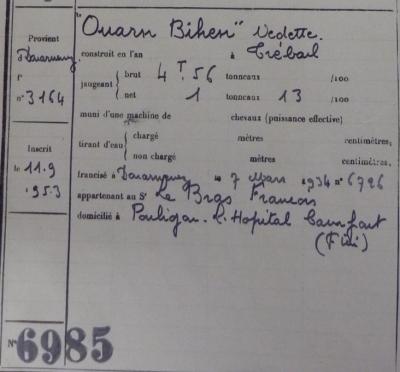 "Ouarn Bihen" Vedette.
Provient
Douarnenez
fº
nº 3164
construit en l'an à Tréboul
jaugeant { brut 4 T. 56 tonneaux /100
net 1 tonneaux 13 /100
muni d'une machine de chevaux (puissance effective)
tirant d'eau { chargé mètres centimètres,
non chargé mètres centimètres,
Inscrit
le 11.9
1953
francisé à Douarnenez le 7 Mars 1934 nº 6726
appartenant au Sr Le Bras François
domicilié à L. Hopital Camfrout
(Fin)
Nº 6985